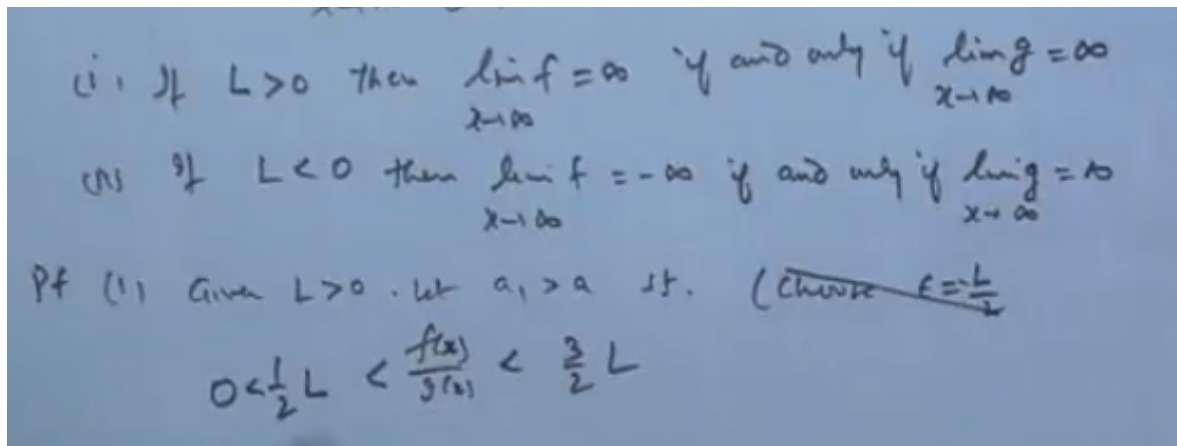 (i) If L > 0 then lim f = ∞ if and only if lim g = ∞
x→∞ x→∞
(ii) If L < 0 then lim f = -∞ if and only if lim g = ∞
x→∞ x→∞
Pf (i) Given L > 0. Let a₁ > a st. (Choose ε = L/2
0 < 1/2 L < f(x)/g(x) < 3/2 L